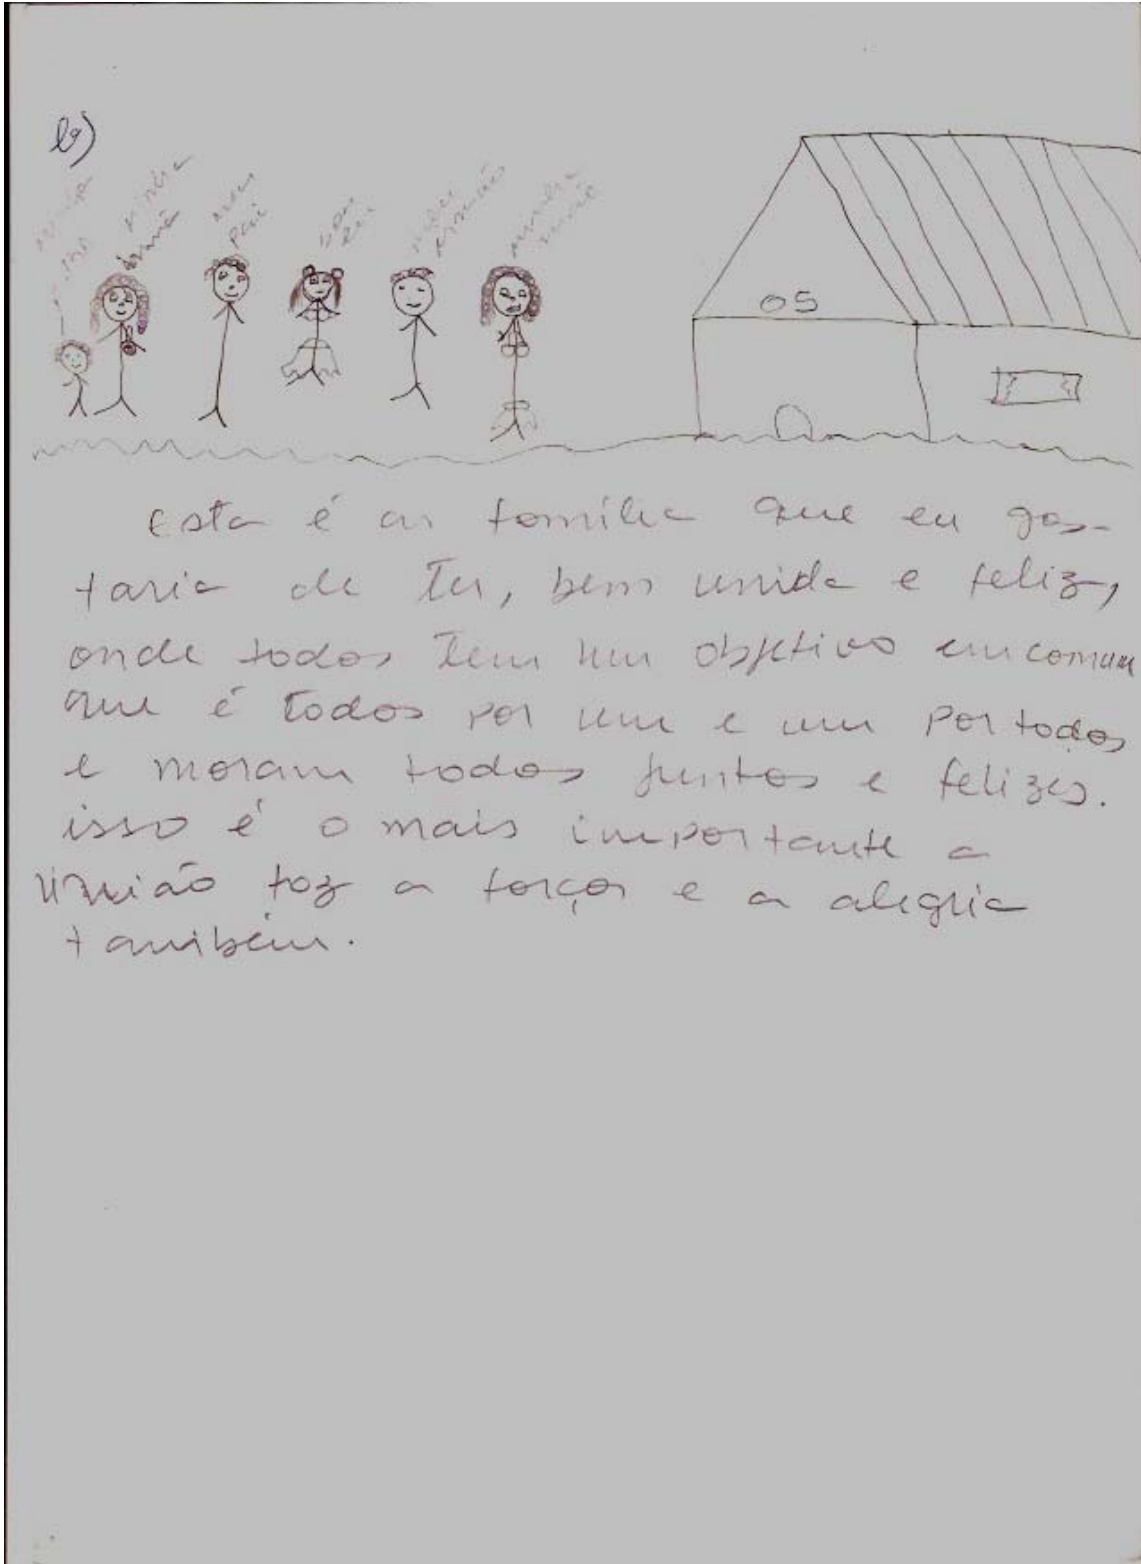 b)
minha
irmã
meu
pai
sou
eu
meu
irmão
minha
mãe
05
Esta é a família que eu gos-
taria de ter, bem unida e feliz,
onde todos tem um objetivo em comum
que é todos por um e um por todos
e moram todos juntos e felizes.
isso é o mais importante a
união faz a força e a alegria
também.